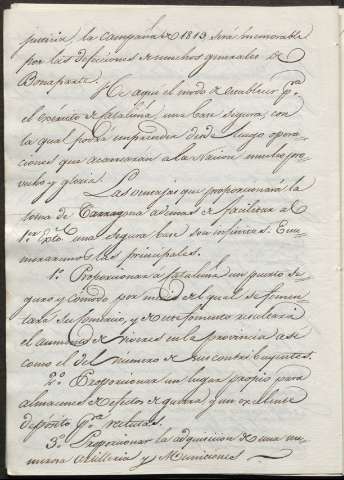 justicia la campaña de 1813 será memorable
por las defecciones de muchos generales de
Bonaparte.
He aqui el modo de establecer pª
el Exército de Cataluña una base segura, con
la qual podrá emprender desde luego opera-
ciones que acarrearán a la Nacion mucho pro-
vecho y gloria.
Las ventajas que proporcionará la
toma de Tarragona ademas de facilitar al
1er Extº una segura base son infinitas. Enu-
meraremos las principales.
1ª Proporcionar a Cataluña un puerto se-
guro y cómodo por medio del qual se fomen-
tará su comercio, y de este fomento resultará
el aumento de víveres en la provincia asi
como el del número de sus contribuyentes.
2º Proporcionar un lugar propio para
almacenes de efectos de guerra y un excelente
depósito pª reclutas.
3º Proporcionar la adquisicion de una nu-
merosa Artillería y Municiones